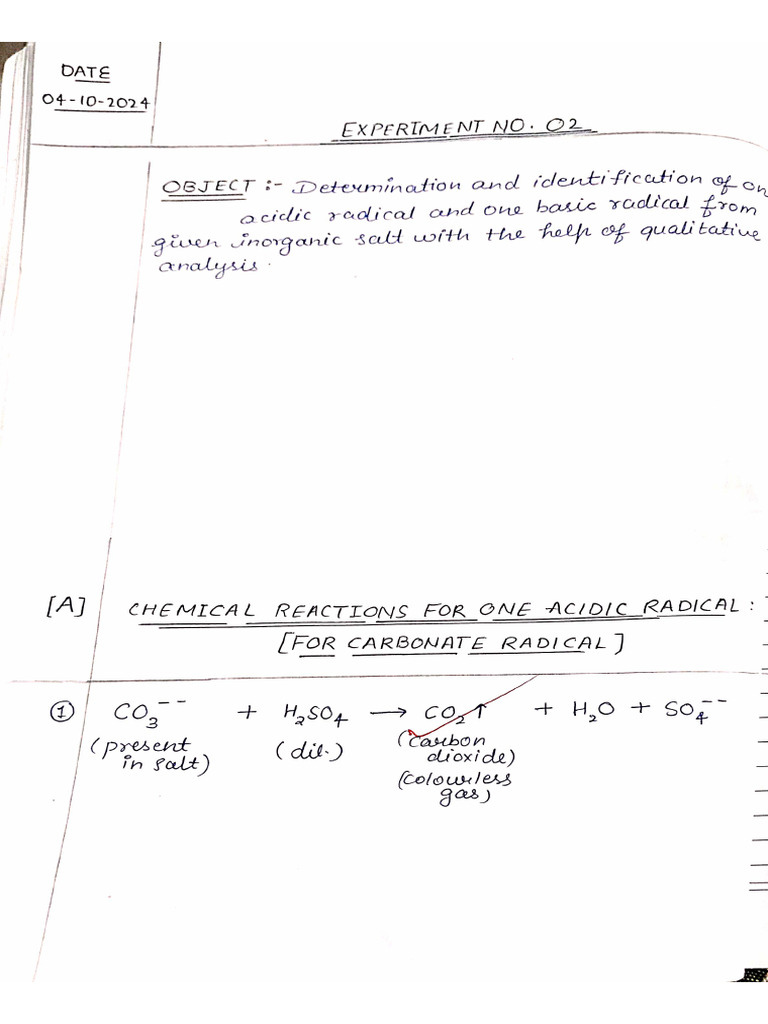 DATE
04-10-2024
EXPERIMENT NO. 02
OBJECT :- Determination and identification of on
acidic radical and one basic radical from
given inorganic salt with the help of qualitative
analysis.
[A] CHEMICAL REACTIONS FOR ONE ACIDIC RADICAL :
[FOR CARBONATE RADICAL]
① CO₃⁻⁻ + H₂SO₄ → CO₂↑ + H₂O + SO₄⁻⁻
(present in salt) (dil.) (Carbon dioxide)
(colourless gas)